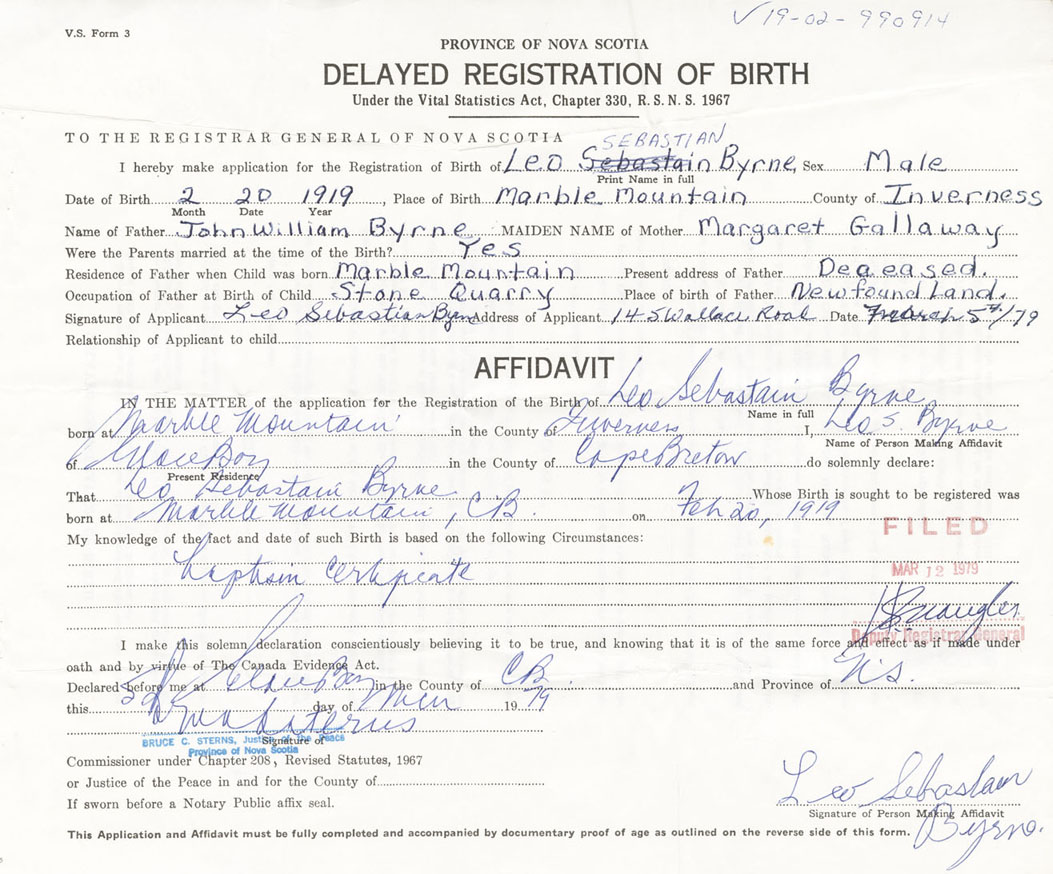 V.S. Form 3
19-02-990914
PROVINCE OF NOVA SCOTIA
DELAYED REGISTRATION OF BIRTH
Under the Vital Statistics Act, Chapter 330, R.S.N.S. 1967
TO THE REGISTRAR GENERAL OF NOVA SCOTIA
SEBASTIAN
I hereby make application for the Registration of Birth of Leo Sebastain Byrne, Sex Male
Print Name in full
Date of Birth 2 20 1919, Place of Birth Marble Mountain County of Inverness
Month Date Year
Name of Father John William Byrne MAIDEN NAME of Mother Margaret Gallaway
Were the Parents married at the time of the Birth? Yes
Residence of Father when Child was born Marble Mountain Present address of Father Deaeased.
Occupation of Father at Birth of Child Stone Quarry Place of birth of Father Newfound Land.
Signature of Applicant Leo Sebastian Byrne Address of Applicant 145 Wallace Road Date March 5th/79
Relationship of Applicant to child
AFFIDAVIT
IN THE MATTER of the application for the Registration of the Birth of Leo Sebastain Byrne
Name in full
born at Marble Mountain in the County of Inverness I, Leo S. Byrne
Name of Person Making Affidavit
of Glace Bay in the County of Cape Breton do solemnly declare:
Present Residence
That Leo Sebastain Byrne Whose Birth is sought to be registered was
born at Marble Mountain, CB. on Feb 20, 1919
FILED
My knowledge of the fact and date of such Birth is based on the following Circumstances:
MAR 12 1979
Baptism Certificate
Deputy Registrar General
I make this solemn declaration conscientiously believing it to be true, and knowing that it is of the same force and effect as if made under
oath and by virtue of The Canada Evidence Act.
Declared before me at Glace Bay in the County of CB. and Province of N.S.
this 5th day of Mar 1979
BRUCE C. STERNS, Justice of the Peace
Signature of
Province of Nova Scotia
Commissioner under Chapter 208, Revised Statutes, 1967
or Justice of the Peace in and for the County of
If sworn before a Notary Public affix seal.
Leo Sebastain
Signature of Person Making Affidavit
Byrne.
This Application and Affidavit must be fully completed and accompanied by documentary proof of age as outlined on the reverse side of this form.